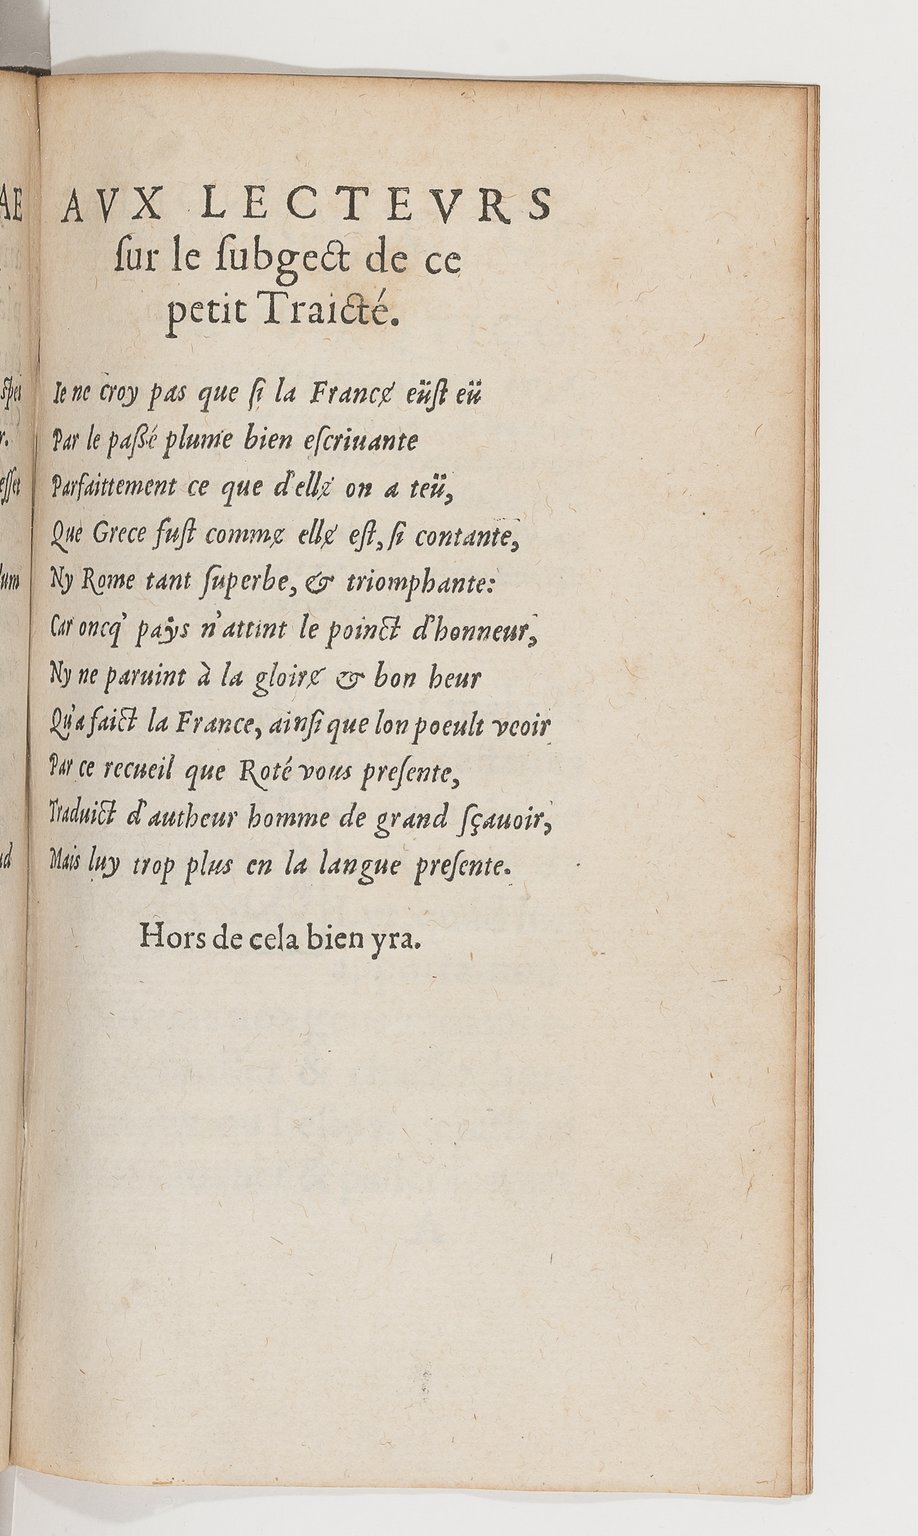 AVX LECTEVRS
ſur le ſubgect de ce
petit Traicté.
Ie ne croy pas que ſi la Francɇ eüſt eü
Par le paßé plume bien eſcriuante
Parfaittement ce que d'ellɇ on a teü,
Que Grece fuſt commɇ ellɇ eſt, ſi contante,
Ny Rome tant ſuperbe, & triomphante:
Car oncq' paÿs n'attint le poinct d'honneur,
Ny ne paruint à la gloirɇ & bon heur
Qu'a faict la France, ainſi que lon poeult veoir
Par ce recueil que Roté vous preſente,
Traduict d'autheur homme de grand ſçauoir,
Mais luy trop plus en la langue preſente.
Hors de cela bien yra.